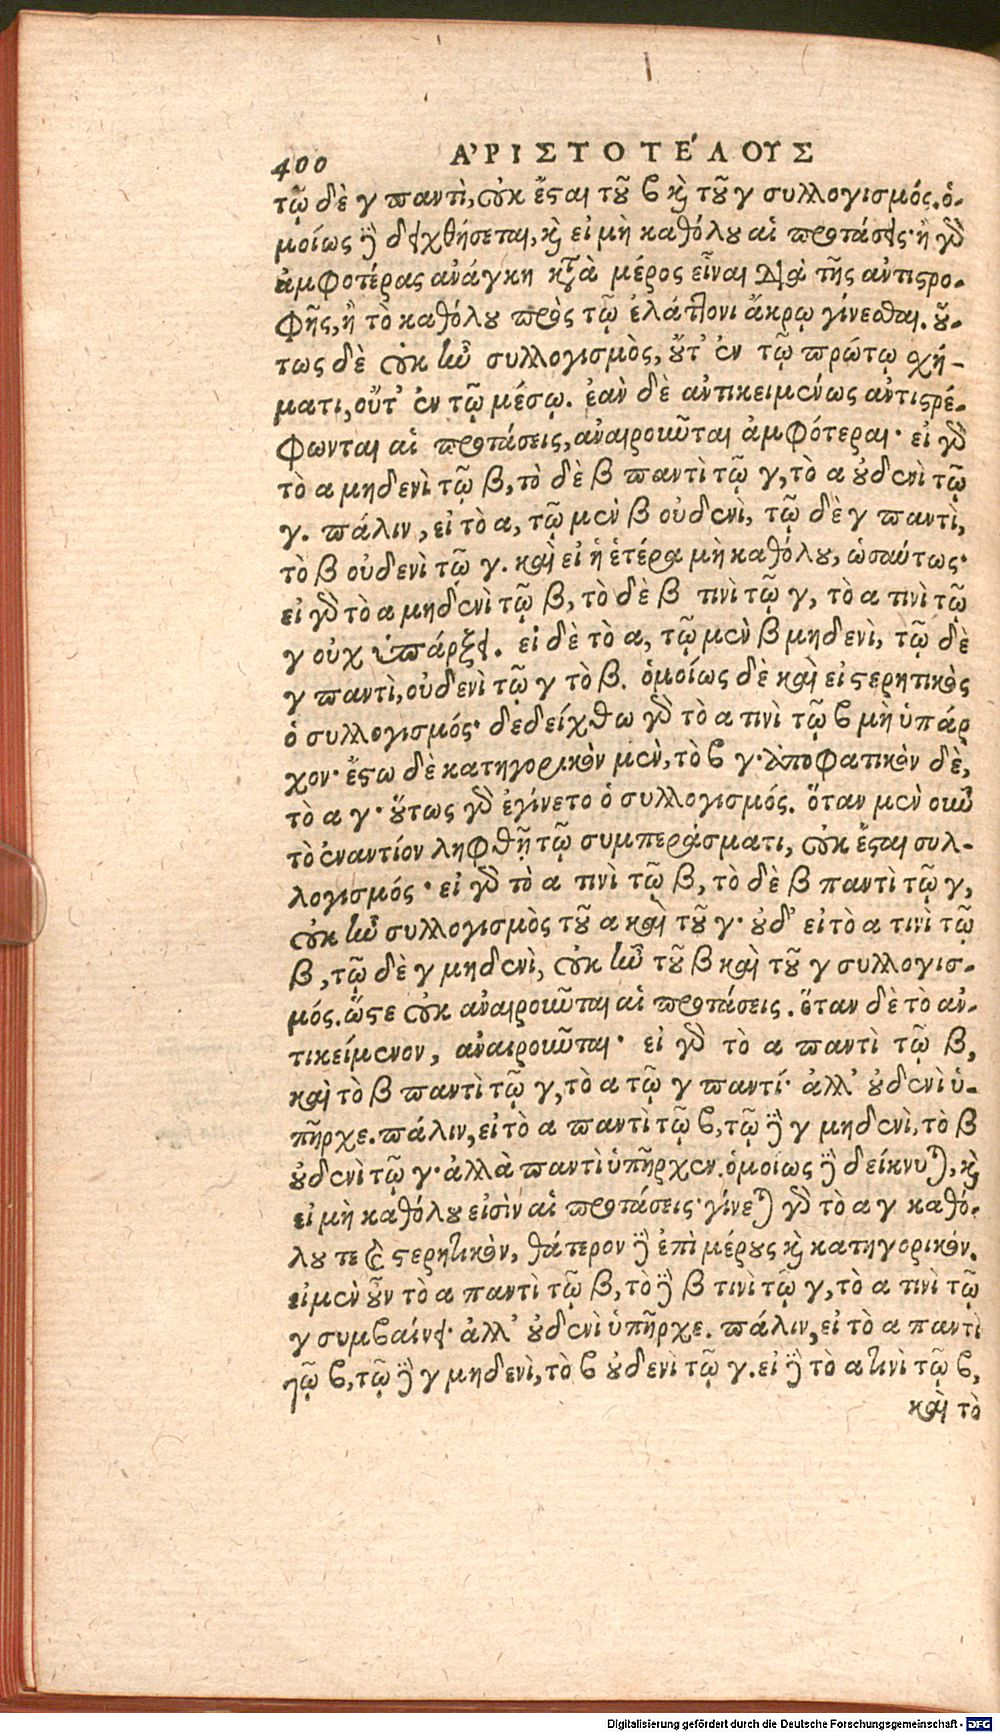 400 ἈΡΙΣΤΟΤΈΛΟΥΣ
τῷ δὲ γ παντὶ, οὐκ ἔσται τοῦ β καὶ τοῦ γ συλλογισμός. ὁ-
μοίως δὲ δειχθήσεται, καὶ εἰ μὴ καθόλου αἱ προτάσεις· ἢ γὰρ
ἀμφοτέρας ἀνάγκη κατὰ μέρος εἶναι διὰ τῆς ἀντιστρο-
φῆς, ἢ τὸ καθόλου πρὸς τῷ ἐλάττονι ἄκρῳ γίνεσθαι. οὕ-
τως δὲ οὐκ ἦν συλλογισμὸς, οὔτ' ἐν τῷ πρώτῳ σχή-
ματι, οὔτ' ἐν τῷ μέσῳ. ἐὰν δὲ ἀντικειμένως ἀντιστρέ-
φωνται αἱ προτάσεις, ἀναιροῦνται ἀμφότεραι· εἰ γὰρ
τὸ α μηδενὶ τῷ β, τὸ δὲ β παντὶ τῷ γ, τὸ α οὐδενὶ τῷ
γ. πάλιν, εἰ τὸ α, τῷ μὲν β οὐδενὶ, τῷ δὲ γ παντὶ,
τὸ β οὐδενὶ τῷ γ. καὶ εἰ ἡ ἑτέρα μὴ καθόλου, ὡσαύτως·
εἰ γὰρ τὸ α μηδενὶ τῷ β, τὸ δὲ β τινὶ τῷ γ, τὸ α τινὶ τῷ
γ οὐχ ὑπάρξει. εἰ δὲ τὸ α, τῷ μὲν β μηδενὶ, τῷ δὲ
γ παντὶ, οὐδενὶ τῷ γ τὸ β. ὁμοίως δὲ καὶ εἰ στερητικὸς
ὁ συλλογισμός· δεδείχθω γὰρ τὸ α τινὶ τῷ β μὴ ὑπάρ
χον· ἔστω δὲ κατηγορικὸν μὲν, τὸ β γ· ἀποφατικὸν δὲ,
τὸ α γ· οὕτως γὰρ ἐγίνετο ὁ συλλογισμός. ὅταν μὲν οὖν
τὸ ἐναντίον ληφθῇ τῷ συμπεράσματι, οὐκ ἔσται συλ-
λογισμός· εἰ γὰρ τὸ α τινὶ τῷ β, τὸ δὲ β παντὶ τῷ γ,
οὐκ ἦν συλλογισμὸς τοῦ α καὶ τοῦ γ· οὐδ' εἰ τὸ α τινὶ τῷ
β, τῷ δὲ γ μηδενὶ, οὐκ ἦν τοῦ β καὶ τοῦ γ συλλογισ-
μός. ὥστε οὐκ ἀναιροῦνται αἱ προτάσεις. ὅταν δὲ τὸ ἀν-
τικείμενον, ἀναιροῦνται· εἰ γὰρ τὸ α παντὶ τῷ β,
καὶ τὸ β παντὶ τῷ γ, τὸ α τῷ γ παντί· ἀλλ' οὐδενὶ ὑ-
πῆρχε. πάλιν, εἰ τὸ α παντὶ τῷ β, τῷ δὲ γ μηδενὶ, τὸ β
οὐδενὶ τῷ γ· ἀλλὰ παντὶ ὑπῆρχεν. ὁμοίως δὲ δείκνυται, καὶ
εἰ μὴ καθόλου εἰσὶν αἱ προτάσεις· γίνεται γὰρ τὸ α γ καθό-
λου τε καὶ στερητικὸν, θάτερον δὲ ἐπὶ μέρους καὶ κατηγορικόν.
εἰ μὲν οὖν τὸ α παντὶ τῷ β, τὸ δὲ β τινὶ τῷ γ, τὸ α τινὶ τῷ
γ συμβαίνει· ἀλλ' οὐδενὶ ὑπῆρχε. πάλιν, εἰ τὸ α παντὶ
τῷ β, τῷ δὲ γ μηδενὶ, τὸ β οὐδενὶ τῷ γ. εἰ δὲ τὸ α τινὶ τῷ β,
καὶ τὸ
Digitalisierung gefördert durch die Deutsche Forschungsgemeinschaft - DFG